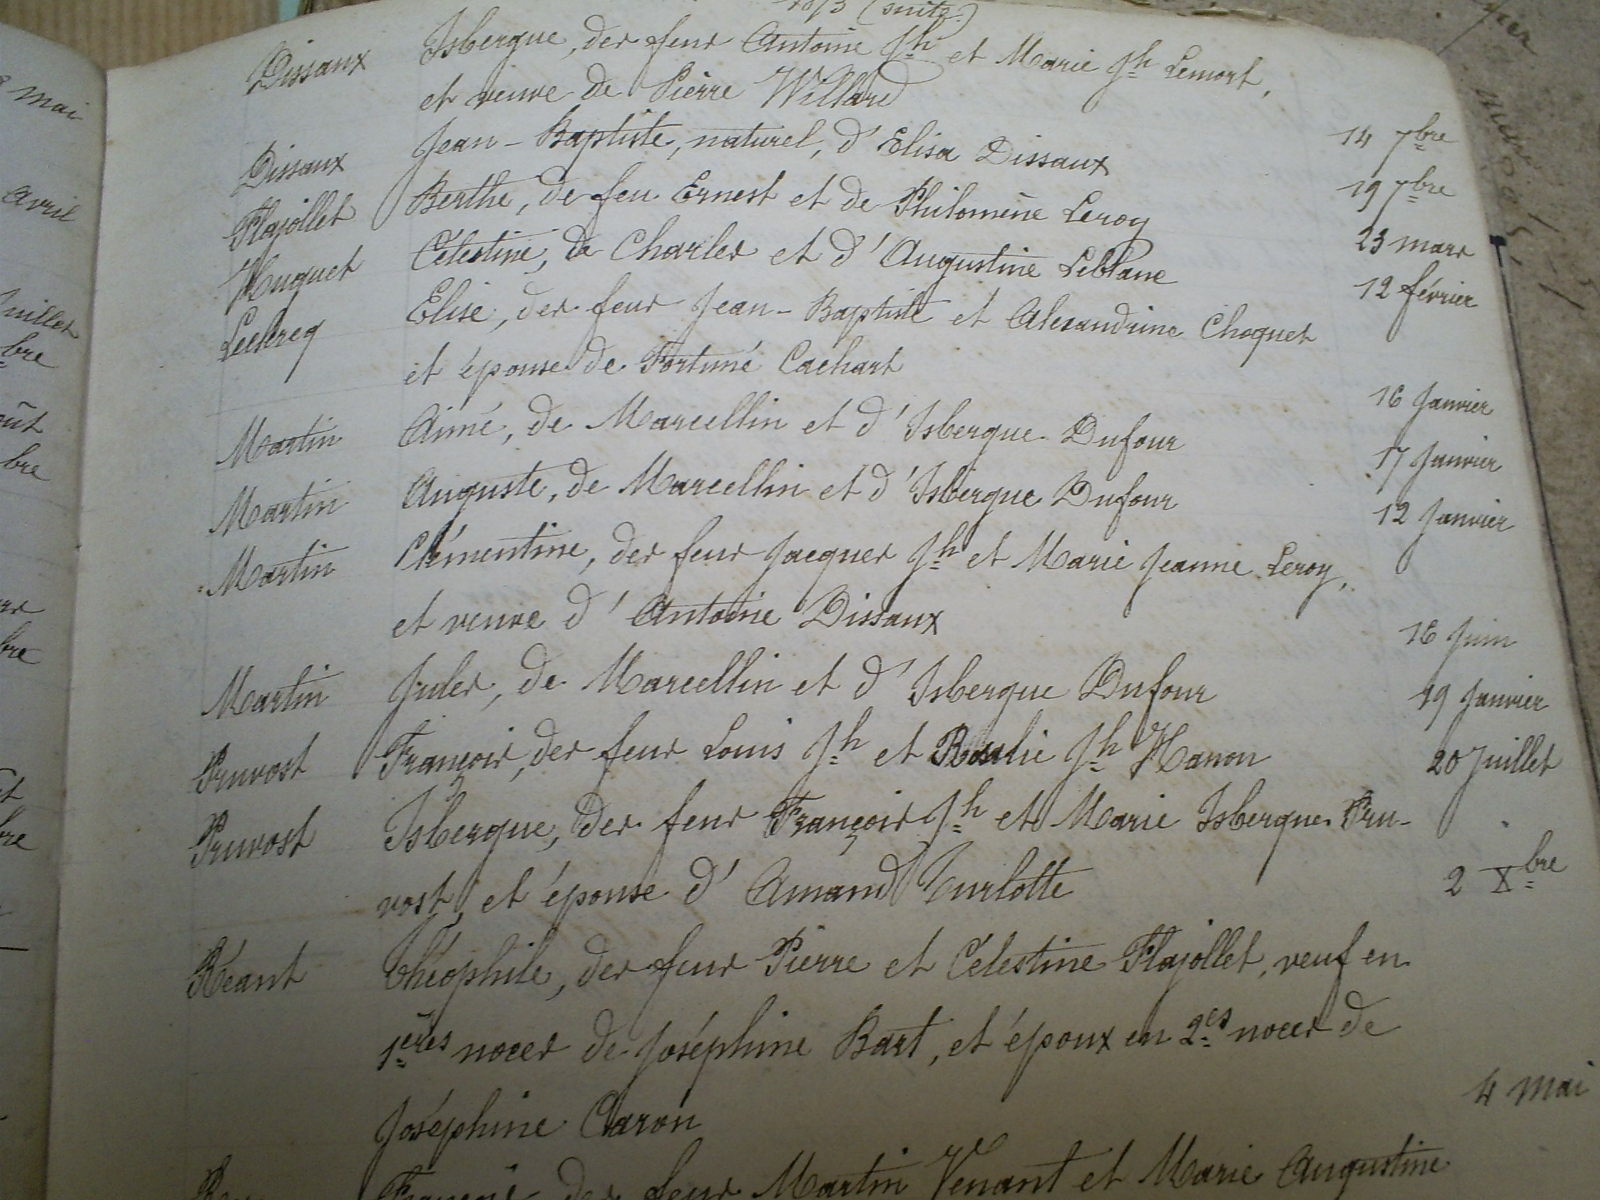 1873 (suite)
Dissaux Isbergue, des feus Antoine Jh et Marie Jh Lemort,
et veuve de Pierre Willard 14 7bre
Dissaux Jean-Baptiste, naturel, d'Elisa Dissaux 19 7bre
Flajollet Berthe, de feu Ernest et de Philomène Leroy 23 mars
Huguet Célestine, de Charles et d'Augustine Leblanc 12 février
Leclercq Elise, des feus Jean-Baptiste et Alexandrine Choquet
et épouse de Fortuné Cachart 16 Janvier
Martin Aimé, de Marcellin et d'Isbergue Dufour 17 Janvier
Martin Auguste, de Marcellin et d'Isbergue Dufour 12 Janvier
Martin Clémentine, des feus Jacques Jh et Marie Jeanne Leroy,
et veuve d'Antoine Dissaux 16 Juin
Martin Jules, de Marcellin et d'Isbergue Dufour 19 Janvier
Pruvost François, des feus Louis Jh et Rosalie Jh Hanon 20 Juillet
Pruvost Isbergue, des feus François Jh et Marie Isbergue Pru-
vost, et épouse d'Amand Turlotte 2 Xbre
Réant Théophile, des feus Pierre et Célestine Flajollet, veuf en
1ères noces de Joséphine Bart, et époux en 2es noces de
Joséphine Caron 4 mai
François des feus Martin Venant et Marie Augustine
mai
avril
Juillet
bre
oût
bre
bre